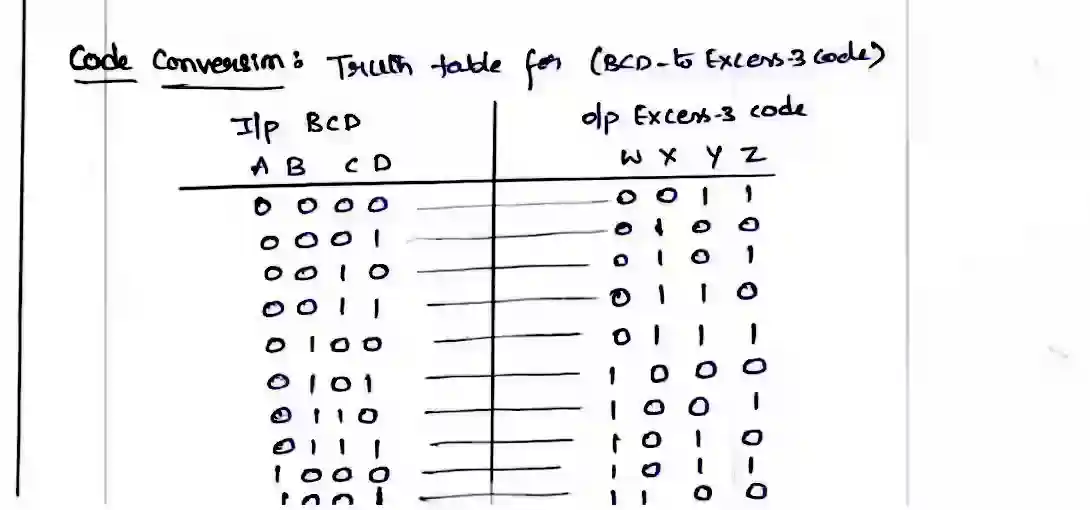 Code Conversion : Truth table for (BCD-to Excess-3 code)
I/p BCD o/p Excess-3 code
A B C D W X Y Z
0 0 0 0 0 0 1 1
0 0 0 1 0 1 0 0
0 0 1 0 0 1 0 1
0 0 1 1 0 1 1 0
0 1 0 0 0 1 1 1
0 1 0 1 1 0 0 0
0 1 1 0 1 0 0 1
0 1 1 1 1 0 1 0
1 0 0 0 1 0 1 1
1 0 0 1 1 1 0 0